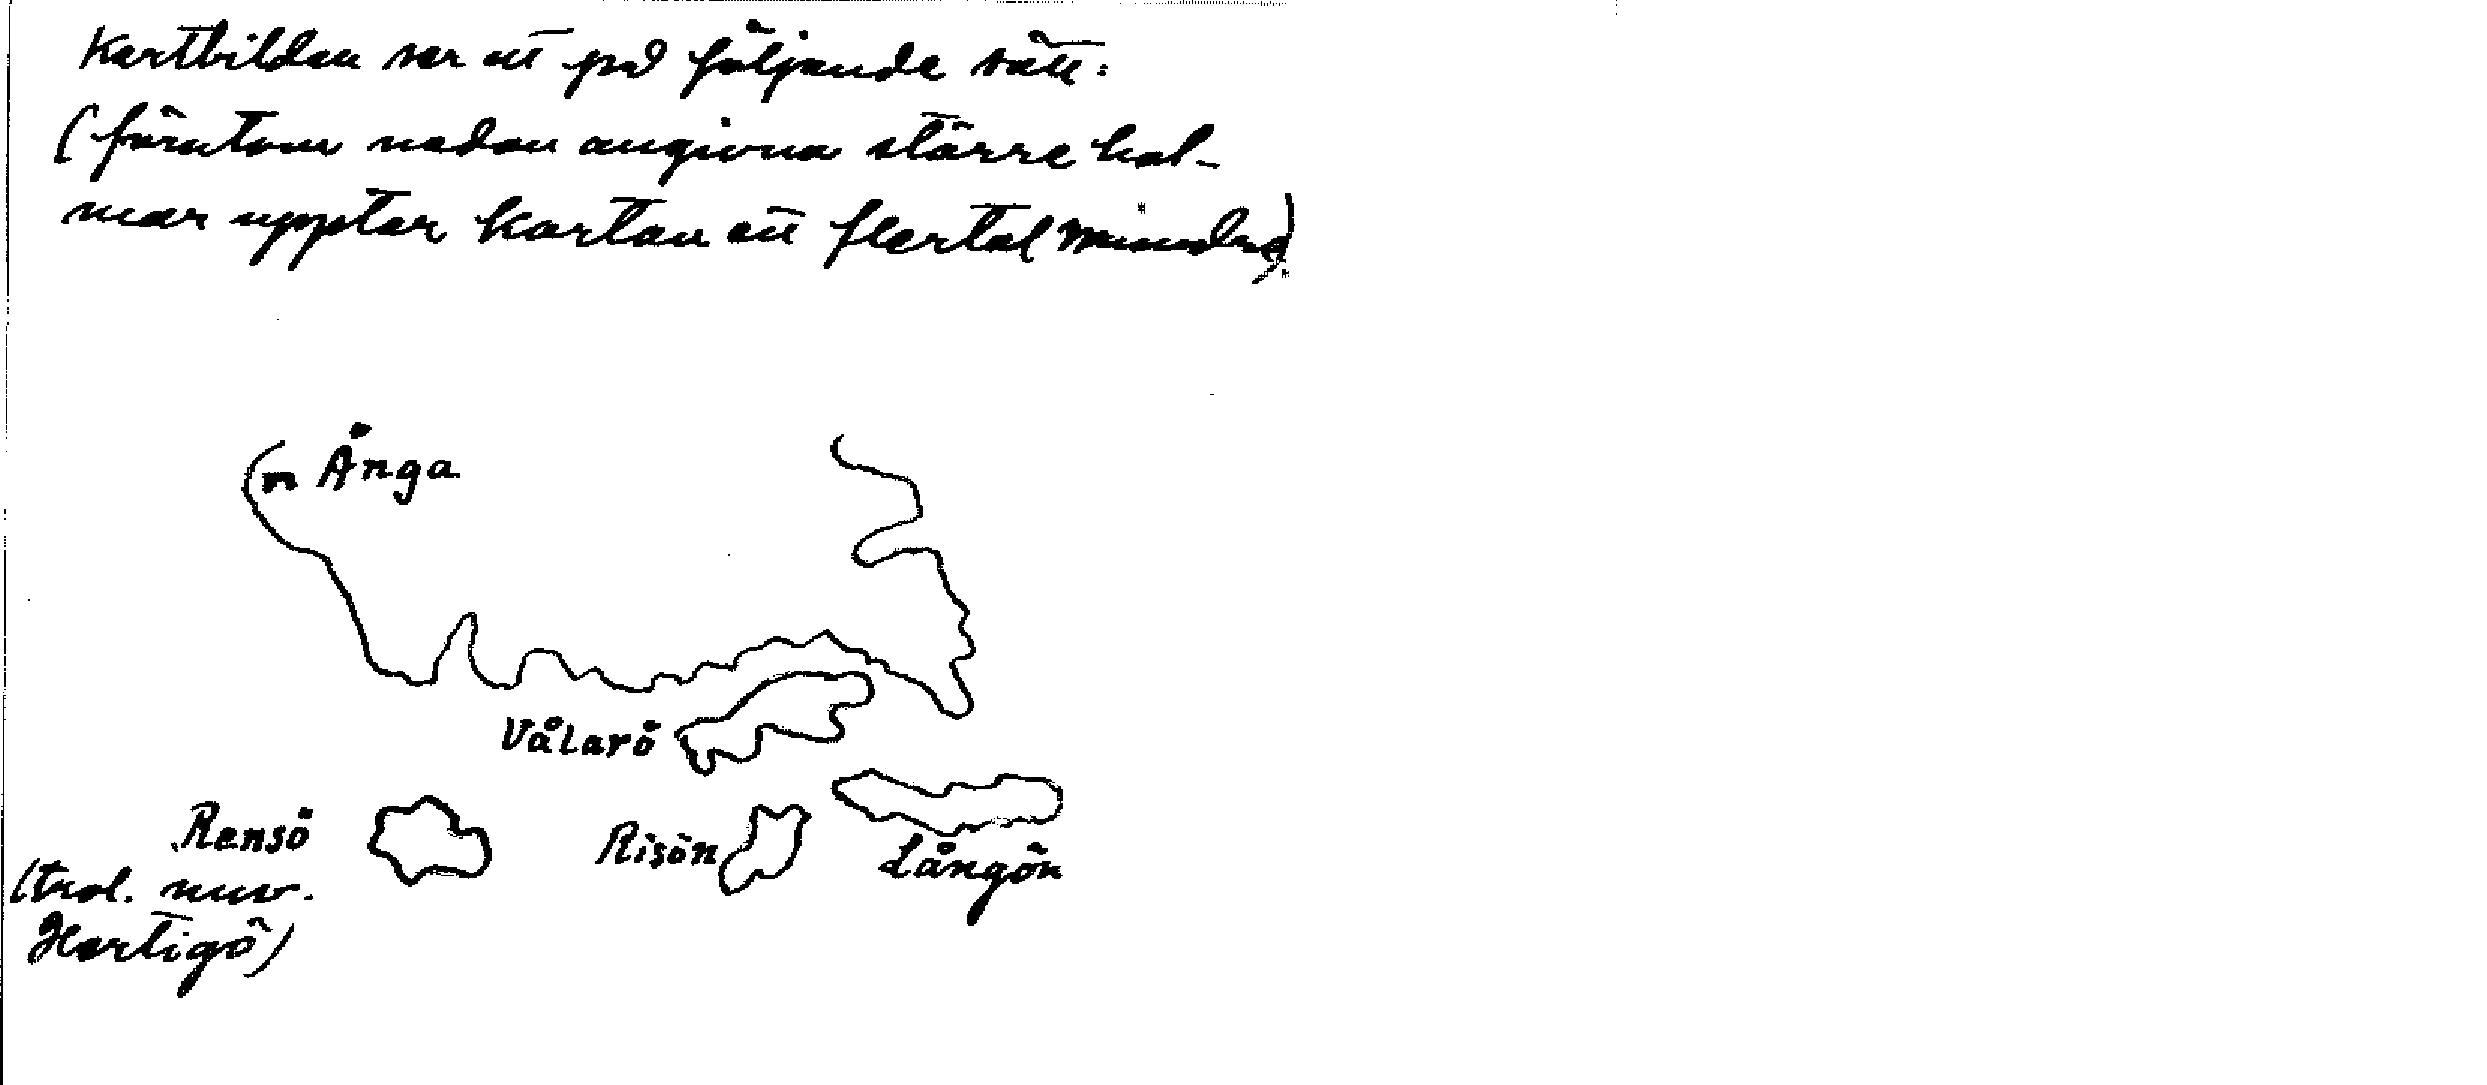 Kartbilden ser ut på följande sätt:
(förutom nedan angivna större hol-
mar upptar kartan ett flertal mindre)
Ånga
Vålarö
Rensö
(trol. nuv.
Hartigö)
Risön
Långön